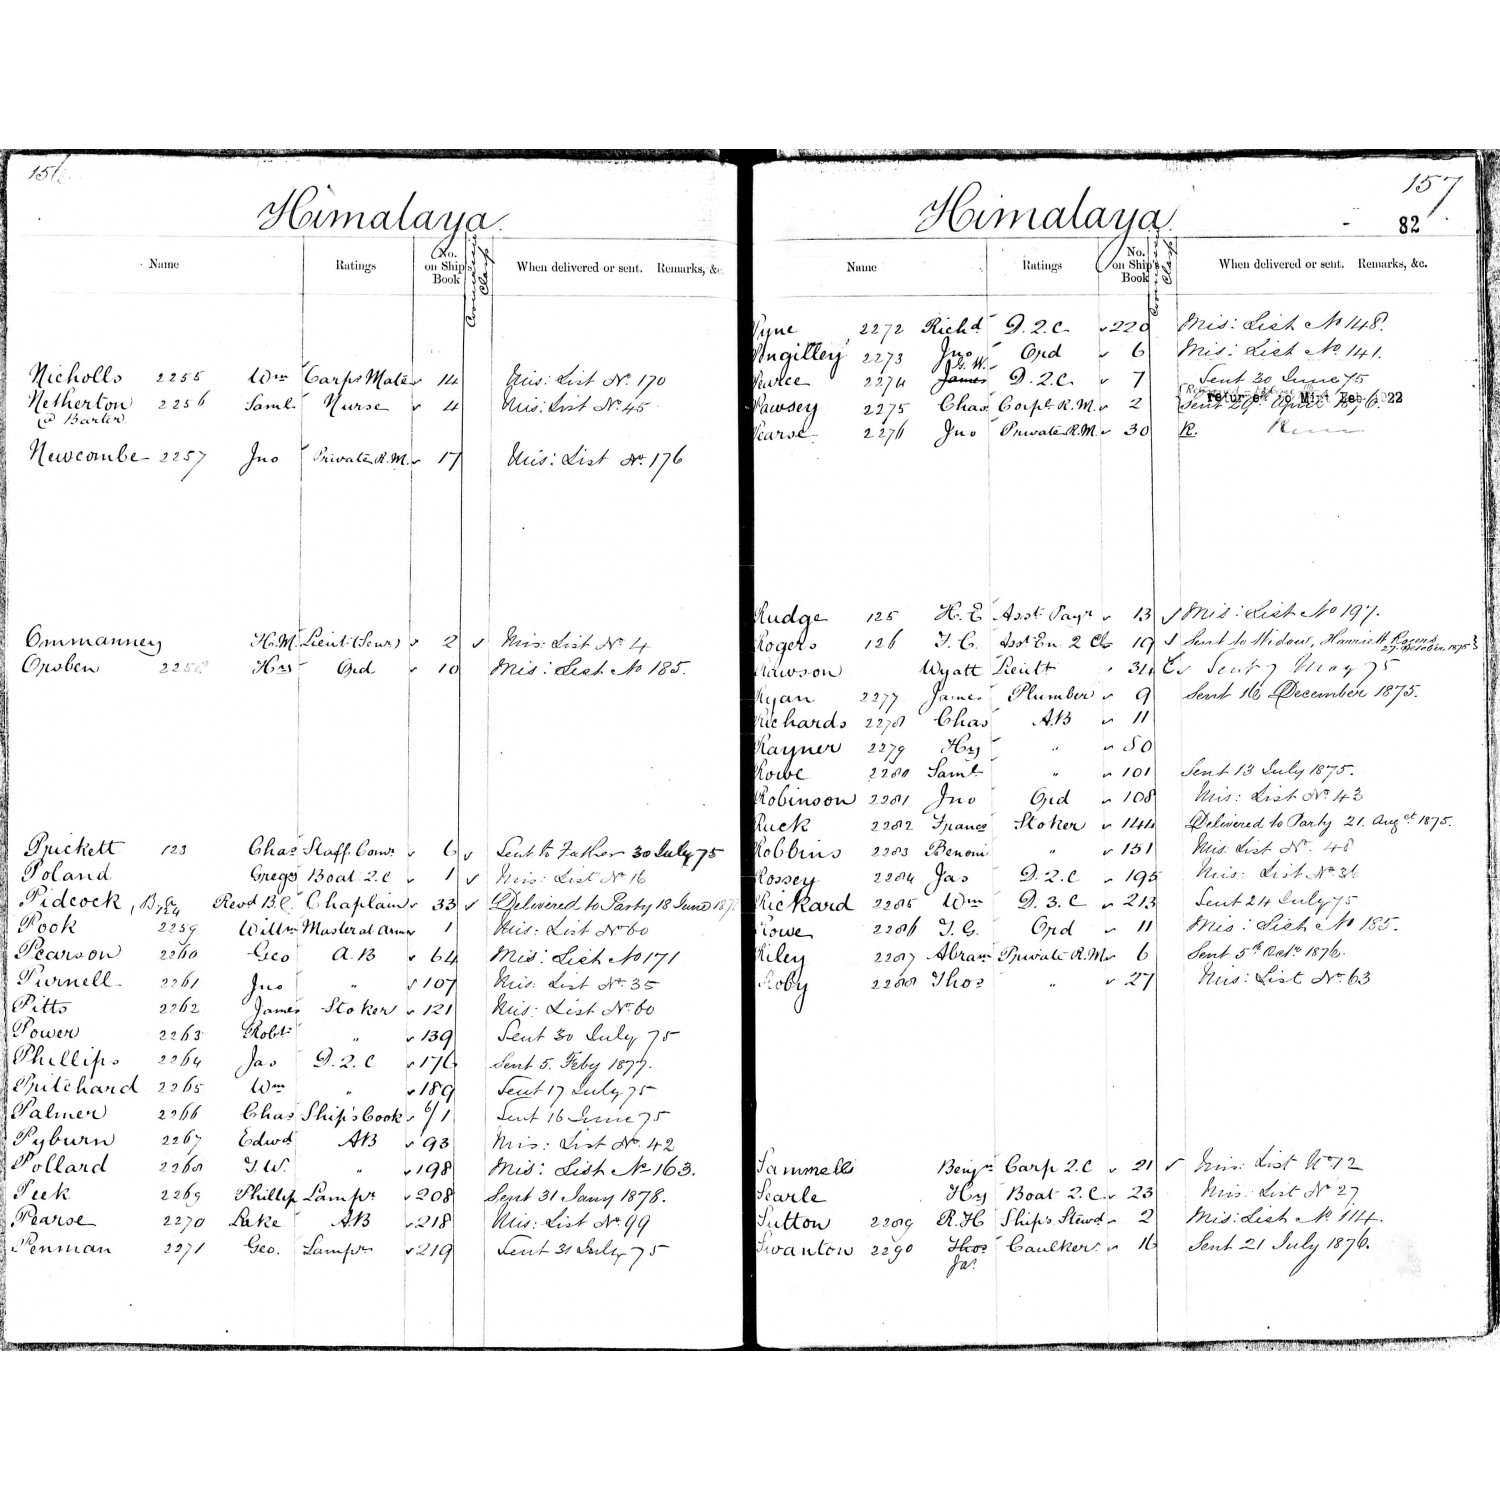 156
Himalaya.
Name Ratings No. on Ship's Book Class When delivered or sent. Remarks, &c.
Nicholls 2255 Wm Carps Mate 14 Mis: List No. 170
Netherton 2256 Saml. Nurse 4 Mis: List No. 45
@ Barter
Newcombe 2257 Jno Private R.M. 17 Mis: List No. 176
Ommanney H.M. Lieut. 2 Mis: List No. 4
Opsben 2258 Hy Ord 10 Mis: List No 185.
Prickett 123 Chas Staff. Comr. 6 Sent to Father 30 July 75
Poland Gregy Boat 2.C 1 Mis: List No 16
Pidcock, 124 Revd B.C. Chaplain 33 Delivered to Party 18 June
Pook 2259 Willm Master at Arms 1 Mis: List No 60
Pearson 2260 Geo A.B 64 Mis: List No 171
Purnell 2261 Jno " 107 Mis: List No. 35
Pitts 2262 James Stoker 121 Mis: List No. 60
Power 2263 Robt. " 139 Sent 30 July 75
Phillips 2264 Jas D.2.C 176 Sent 5. Feby 1877.
Pritchard 2265 Wm " 189 Sent 17 July 75
Palmer 2266 Chas Ship's Cook 6/1 Sent 16 June 75
Pyburn 2267 Edwd AB 93 Mis: List No. 42
Pollard 2268 J.W. " 198 Mis: List No 163.
Peek 2269 Phillip Lampr. 208 Sent 31 Jany 1878.
Pearse 2270 Lake AB 218 Mis: List No. 99
Penman 2271 Geo. Lampr 219 Sent 31 July 75
157
Himalaya.
82
Name Ratings No. on Ship's Book Class When delivered or sent. Remarks, &c.
Pyne 2272 Richd D.2.C. 220 Mis: List No 148.
Pngilley 2273 Jno Ord 6 Mis: List No. 141.
J.W.
Pearce 2274 James D.2.C. 7 Sent 30 June 75
Pawsey 2275 Chas Corpl. R.M. 2 Sent 29th April 1876.
Pearse 2276 Jno Private R.M. 30 R.
Rudge 125 H.E Asst. Payr 13 Mis: List No 197.
Rogers 126 J.C. Asst En. 2 Cl 19 Sent to Widow, Harriett Rogers
27 October 1875
Rawson Wyatt Lieut 34 Sent 7 May 75
Ryan 2277 James Plumber 9 Sent 16 December 1875.
Richards 2278 Chas A.B 11
Rayner 2279 Hy " 80
Rowe 2280 Saml. " 101 Sent 13 July 1875.
Robinson 2281 Jno Ord 108 Mis: List No. 43
Ruck 2282 Francs Stoker 144 Delivered to Party 21. August 1875.
Robbins 2283 Benoni " 151 Mis: List No. 48
Rossey 2284 Jas D.2.C 195 Mis: List No. 36
Rickard 2285 Wm D.3.C 213 Sent 24 July 75
Rowe 2286 J.G. Ord 11 Mis: List No 185.
Riley 2287 Abram Private R.M. 6 Sent 5th Octr. 1876.
Roby 2288 Thos " 27 Mis: List No. 63
Sammells Benjn Carp 2.C 21 Mis: List No 72
Searle Hy Boat 2.C. 23 Mis: List No 27
Sutton 2289 R.H Ship's Stewd 2 Mis: List No. 114.
Swanton 2290 Thos. Caulker 16 Sent 21 July 1876.
Jas.